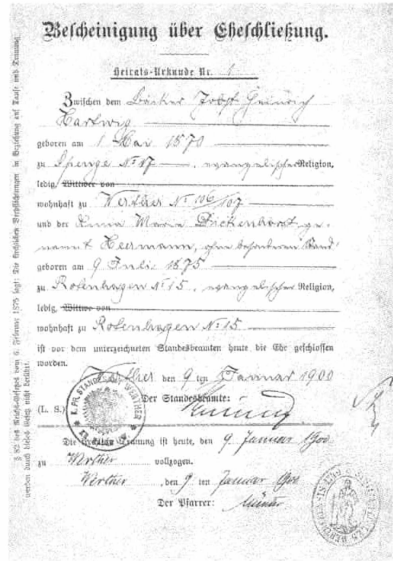 Bescheinigung über Eheschließung.
Heirats-Urkunde Nr. 1
Zwischen dem Bäcker Jobst Heinrich
Hartwig
geboren am 1 Mai 1870
zu Spenge No 17, evangelischer Religion,
ledig, Wittwer von
wohnhaft zu Werther No 106/107
und der Anna Maria Bickenhorst ge-
nannt Heermann, ohne besonderen Stand
geboren am 9 Juli 1875
zu Rotenhagen No 15, evangelischer Religion,
ledig, Wittwe von
wohnhaft zu Rotenhagen No 15
ist vor dem unterzeichneten Standesbeamten heute die Ehe geschlossen
worden.
Werther den 9 ten Januar 1900
Der Standesbeamte:
(L. S.)
Die Trauung ist heute, den 9. Januar 1900
zu Werther vollzogen.
Werther, den 9 ten Januar 1900
Der Pfarrer:
K. PR. STANDESAMT WERTHER
§ 82 des Reichs-Gesetzes vom 6. Februar 1875 sagt: Die kirchlichen Verpflichtungen in Beziehung auf Taufe und Trauung
werden durch dieses Gesetz nicht berührt.